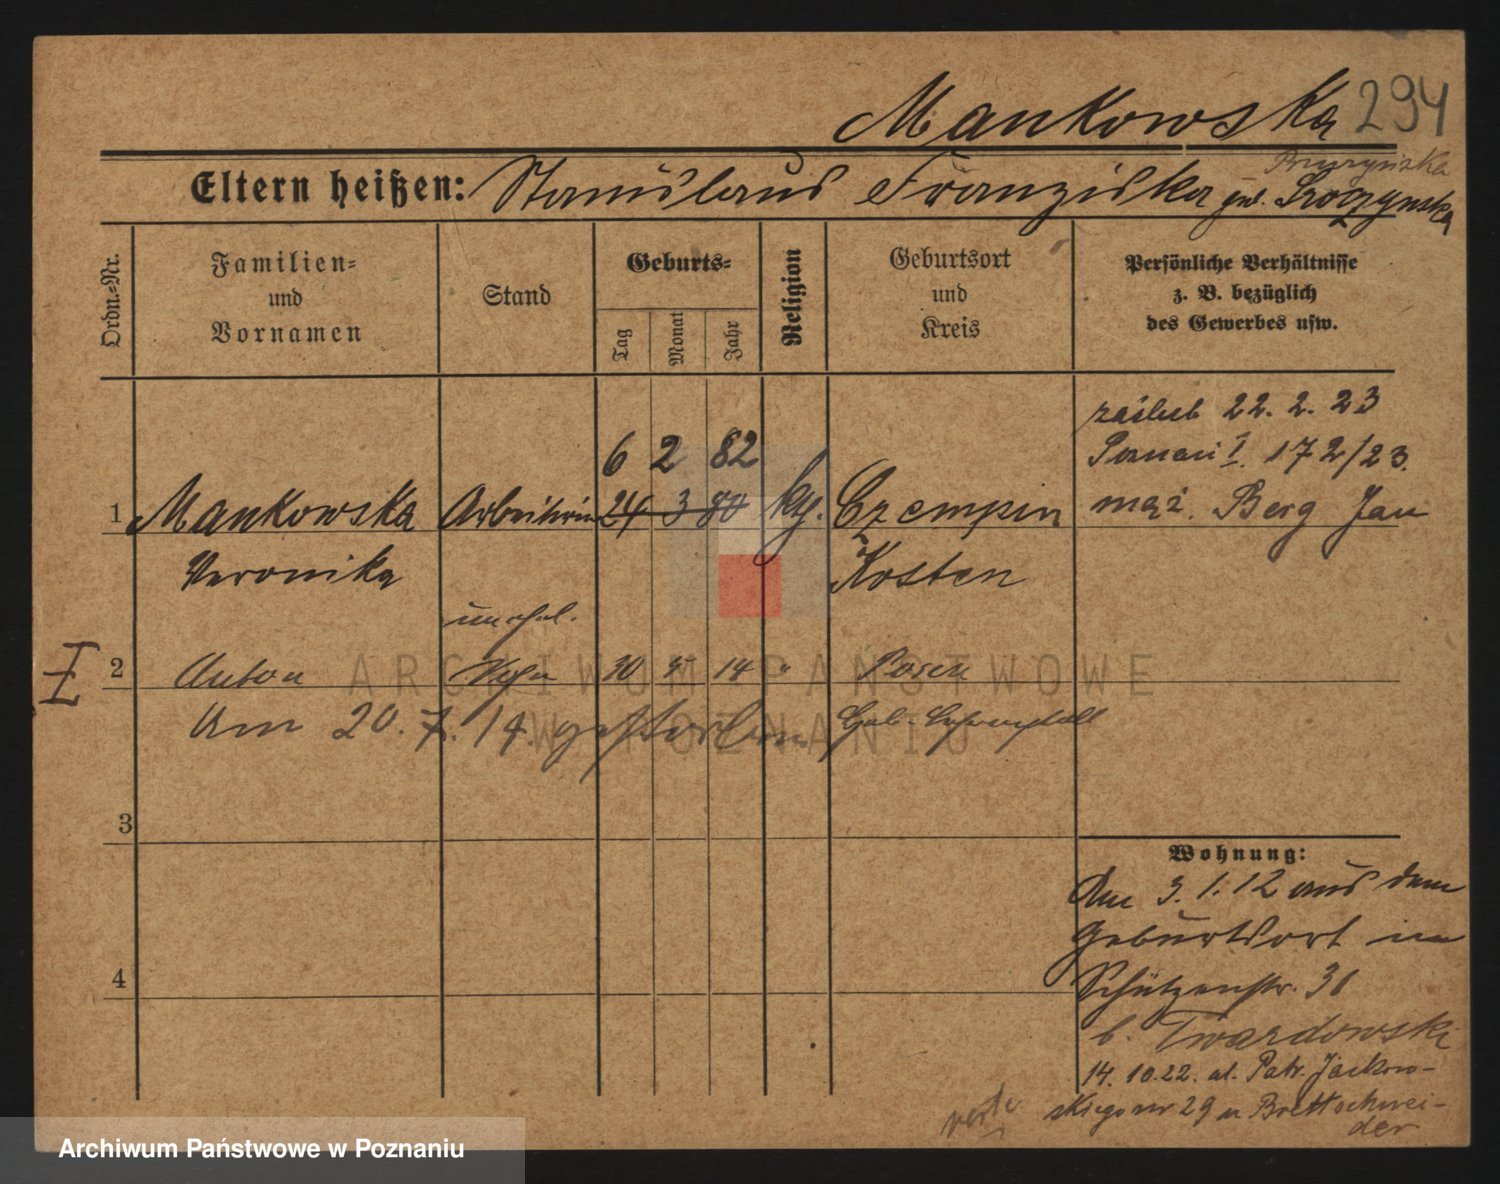 Mankowska 294
Eltern heißen: Stanislaus Franziska geb.
Ordn.-Nr.
Familien-
und
Vornamen
Stand
Geburts-
Tag
Monat
Jahr
Religion
Geburtsort
und
Kreis
Persönliche Verhältnisse
z. B. bezüglich
des Gewerbes usw.
zaślub 22. 2. 23
Poznań I. 172/23.
mąż. Berg Jan
6 2 82
1 Mankowska Arbeiterin 24 3 80 kth. Czempin
Veronika Kosten
unehel.
2 Anton Sohn 30 5 14 " Posen
Am 20. 7. 14. gestorben
3
4
Wohnung:
Am 3. 1. 12 aus dem
Geburtsort in
Schützenstr. 31
b. Twardowski
14. 10. 22. ul. Patr. Jackow-
skiego nr 29 u Brettschnei-
der
verte
ARCHIWUM PAŃSTWOWE
W POZNANIU
Archiwum Państwowe w Poznaniu